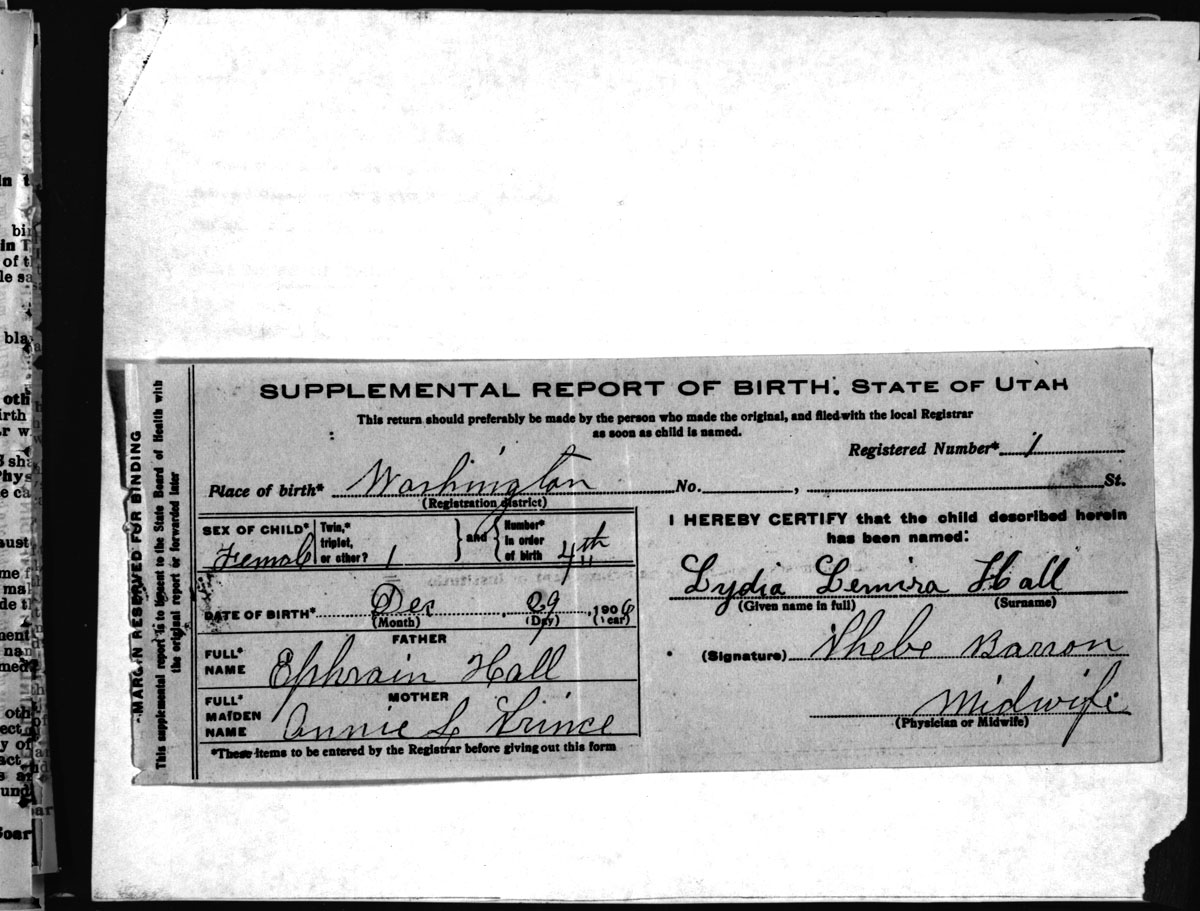 SUPPLEMENTAL REPORT OF BIRTH. STATE OF UTAH
This return should preferably be made by the person who made the original, and filed with the local Registrar
as soon as child is named.
Registered Number* 1
Place of birth* Washington No. , St.
(Registration district)
SEX OF CHILD* Female
Twin,* triplet, or other? 1
and
Number* in order of birth 4th
DATE OF BIRTH* Dec 29, 1906
(Month) (Day) (Year)
FATHER
FULL* NAME Ephraim Hall
MOTHER
FULL* MAIDEN NAME Annie L Prince
*These items to be entered by the Registrar before giving out this form
I HEREBY CERTIFY that the child described herein
has been named:
Lydia Lemira Hall
(Given name in full) (Surname)
(Signature) Phebe Barron
Midwife
(Physician or Midwife)
MARGIN RESERVED FOR BINDING
This supplemental report is to be sent to the State Board of Health with
the original report or forwarded later